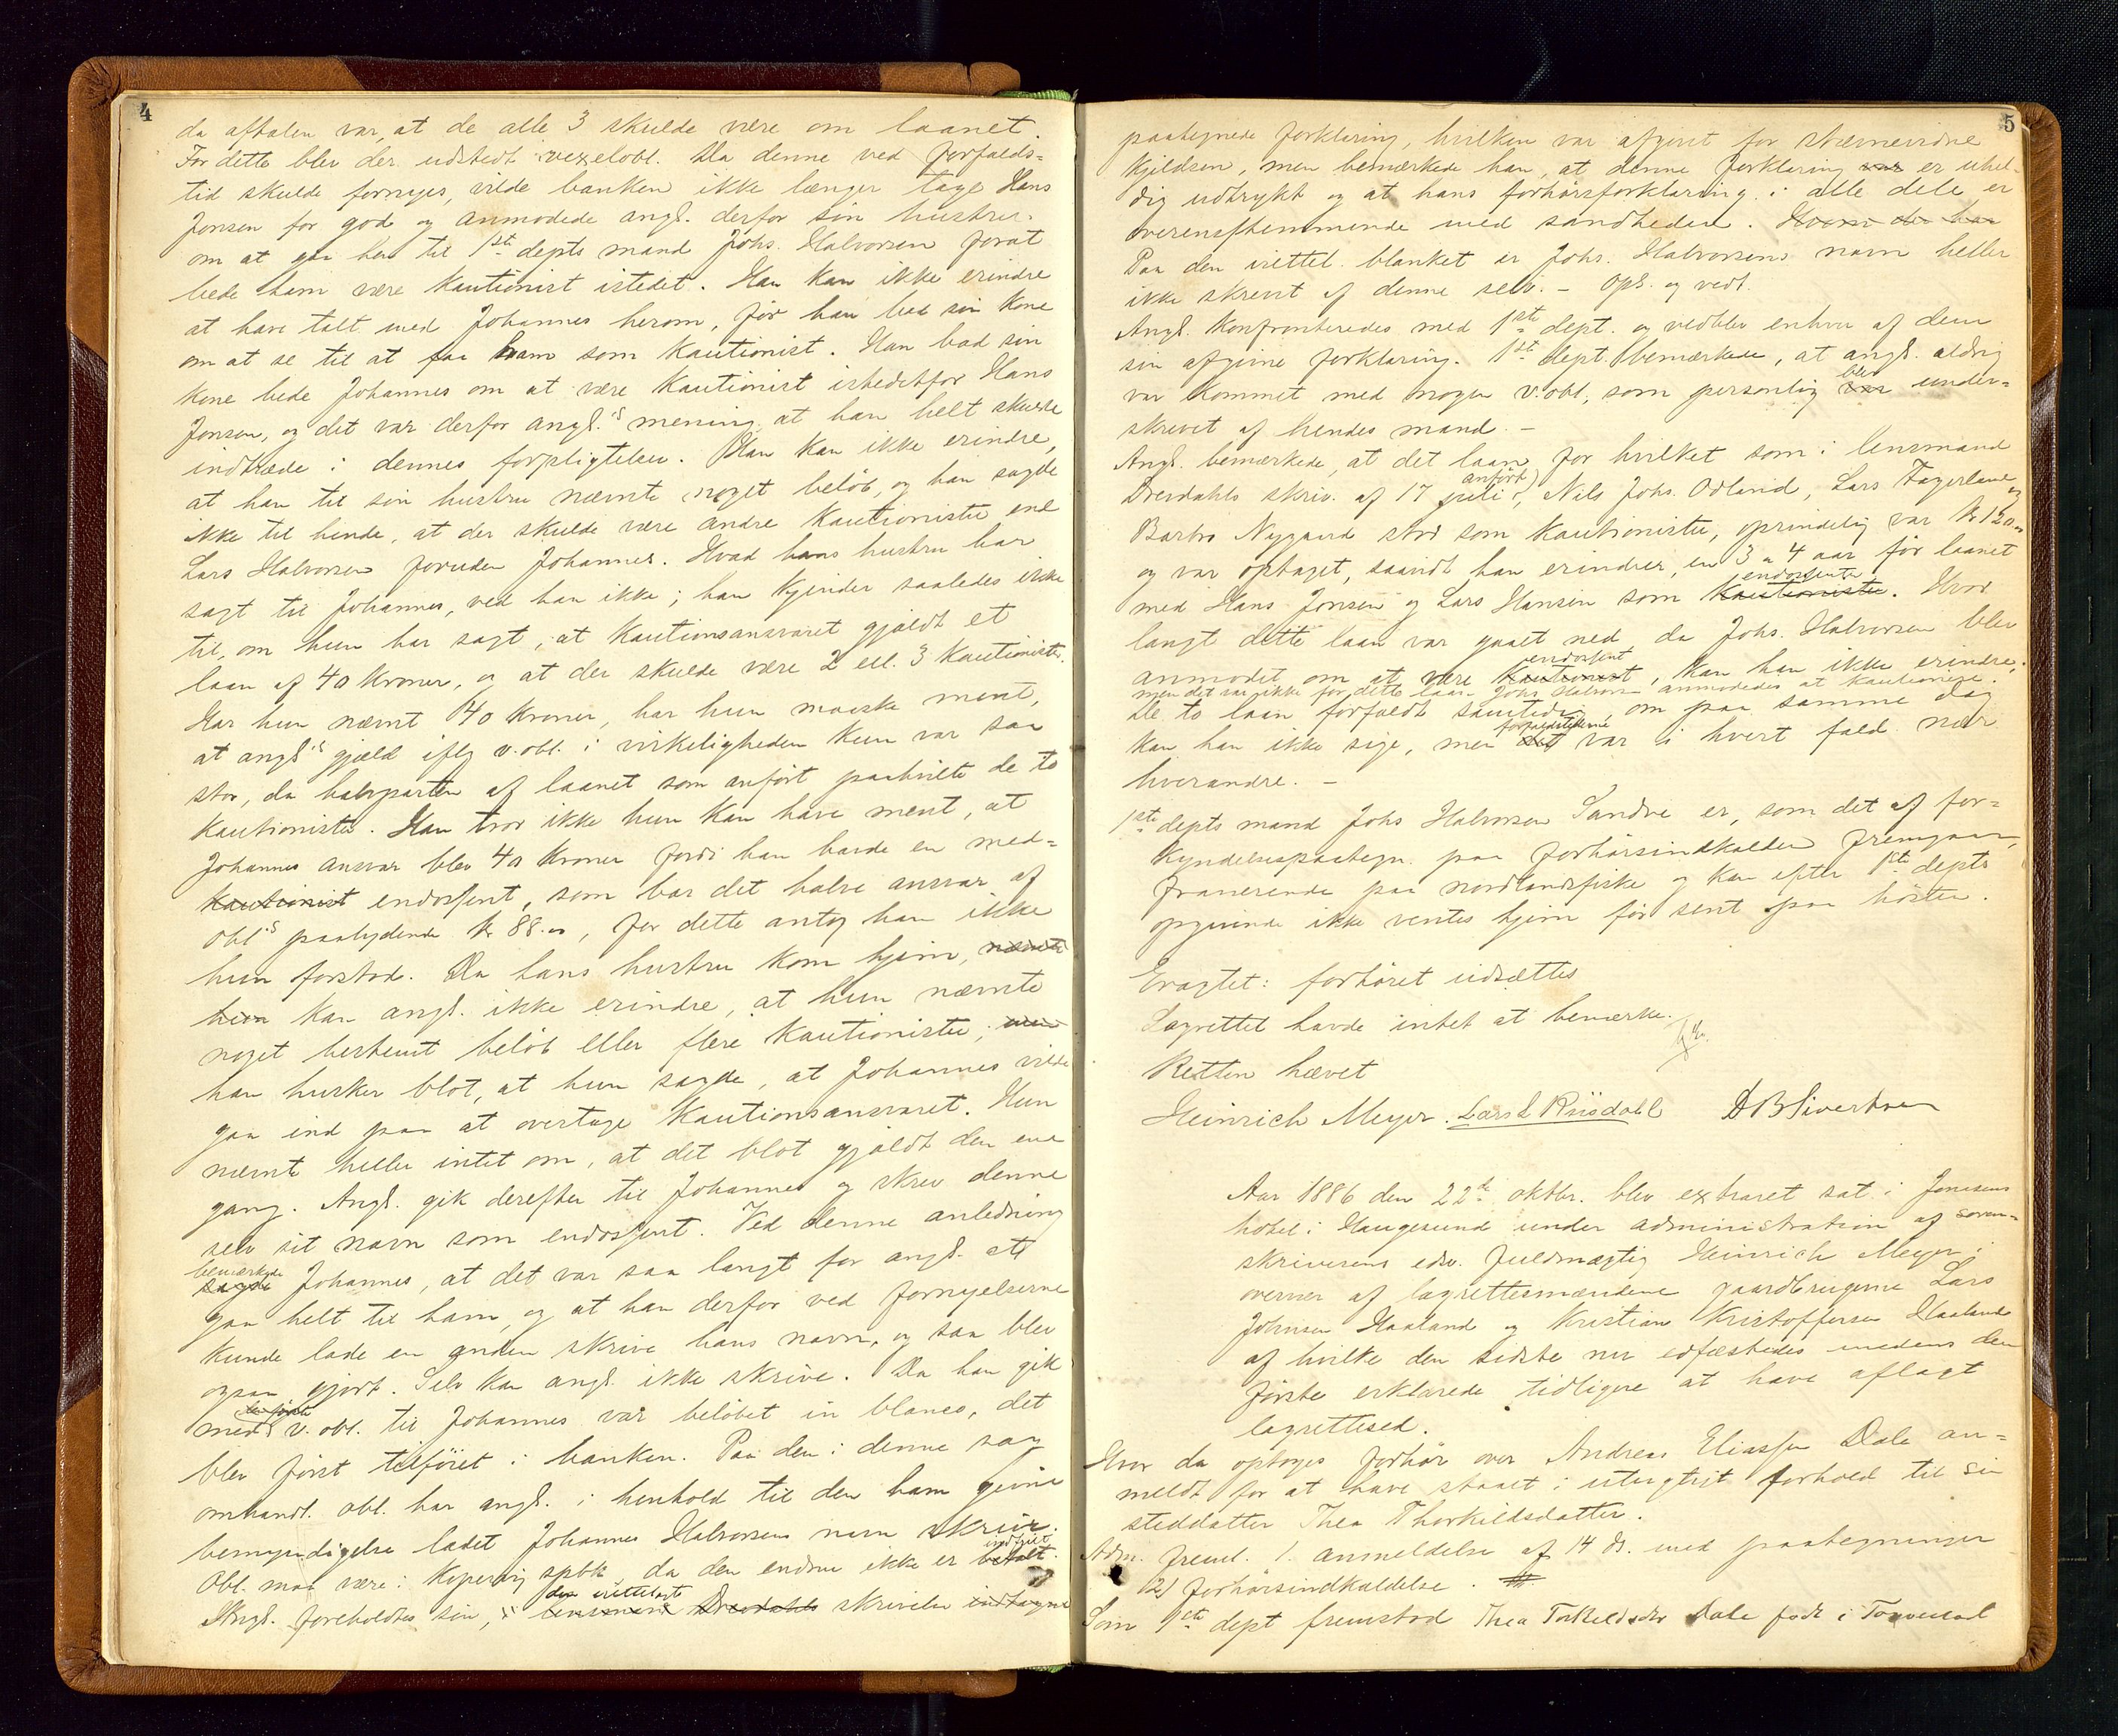 4
da aftalen var, at de alle 3 skulde være om laanet.
For dette blev der udstedt vexelobl. Da denne ved forfalds-
tid skulde fornyes, vilde banken ikke længer tage Hans
Jonsen for god og anmodede angl. derfor sin hustru
om at gaa hen til 1ste depts mand Johs. Halvorsen forat
bede ham være kautionist istedet. Han kan ikke erindre
at have talt med Johannes herom, før han bad sin kone
om at se til at faa ham som kautionist. Han bad sin
kone bede Johannes om at være kautionist istedetfor Hans
Jonsen, og det var derfor angl.s mening, at han helt skulde
indtræde i dennes forpligtelser. Han kan ikke erindre,
at han til sin hustru nævnte noget beløb, og han sagde
ikke til hende, at der skulde være andre kautionister end
Lars Halvorsen foruden Johannes. Hvad hans hustru har
sagt til Johannes, ved han ikke; han kjender saaledes ikke
til, om hun har sagt, at kautionsansvaret gjaldt et
laan af 40 kroner, og at der skulde være 2 ell. 3 kautionister.
Har hun nævnt 40 kroner, har hun maaske ment,
at angl.s gjæld iflg v.obl. i virkeligheden kun var saa
stor, da halvparten af laanet som anført paahvilte de to
kautionister. Han tror ikke hun kan have ment, at
Johannes ansvar blev 40 kroner fordi han havde en med-
kautionist endossent, som bar det halve ansvar af
obl.s paalydende kr 88.00, for dette antog han ikke
hun forstod. Da hans hustru kom hjem, nævnte
hun kan angl. ikke erindre, at hun nævnte
noget bestemt beløb eller flere kautionister; men
han husker blot, at hun sagde, at Johannes vilde
gaa ind paa at overtage kautionsansvaret. Hun
nævnte heller intet om, at det blot gjaldt den ene
gang. Angl. gik derefter til Johannes og skrev denne
selv sit navn som endossent. Ved denne anledning
bemærkede
sagde Johannes, at det var saa langt for angl. at
gaa helt til ham, og at han derfor ved fornyelserne
kunde lade en anden skrive hans navn, og saa blev
ogsaa gjort. Selv kan angl. ikke skrive. Da han gik
med v. obl. til Johannes var beløbet in blanco, det
blev først tilføiet i banken. Paa den i denne sag
omhandl. obl. har angl. i henhold til den ham givne
bemyndigelse ladet Johannes Halvorsens navn skrive.
indfriet
Obl. maa være i Kopervig spbk, da den endnu ikke er betalt.
den irettelagte
Angl. foreholdtes sin, i lensmand Drevdahls skrivelse indtagne
5
paategnede forklaring, hvilken var afgivet for stævnevidne
Kjeldsen, men bemærkede han, at denne forklaring var er uhel-
dig udtrykt og at hans forhørsforklaring i alle dele er
overensstemmende med sandheden. Hvem der har
Paa den irettel. blanket er Johs. Halvorsens navn heller
ikke skrevet af denne selv. – Opl. og vedt.
Angl. konfronteredes med 1ste dept. og vedblev enhver af dem
sin afgivne forklaring. 1ste dept. bemærkede, at angl. aldrig
blev
var kommet med nogen v.obl., som personlig var under-
skrevet af hendes mand. –
Angl. bemærkede, at det laan for hvilket som i lensmand
anført)
Drevdahls skriv. af 17 juli, Nils Johs. Odland, Lars Fagerland og
Barbro Nygaard stod som kautionister, oprindelig var kr 120.00
og var optaget, saavidt han erindrer, en 3 a 4 aar før laanet
endossenter
med Hans Jonsen og Lars Hansen som kautionister. Hvor
langt dette laan var gaaet ned da Johs. Halvorsen blev
endossent
anmodet om at være kautionist, kan han ikke erindre;
men det var ikke for dette laan Johs Halvorsen anmodedes at kautionere.
De to laan forfaldt samtidig, om paa samme dag
forfaldstiderne
kan han ikke sige, men det var i hvert fald nær
hverandre. –
1ste depts mand Johs Halvorsen Sandve er, som det af for-
kyndelsespaategn. paa forhørsindkaldelsen fremgaar,
fraværende paa nordlandsfiske og kan efter 1ste depts
opgivende ikke ventes hjem før sent paa høsten.
Eragtet: forhøret udsættes
Lagrettet havde intet at bemærke.
Retten hævet
Heinrich Meyer. Lars L Riisdahl D B Sivertsen
Aar 1886 den 22de oktbr. blev extraret sat i Jonesens
hotel i Haugesund under administration af soren-
skriverens edsv. fuldmægtig Heinrich Meyer i
overvær af lagrettesmændene gaardbrugerne Lars
Johnsen Haaland og Kristian Kristoffersen Haaland
af hvilke den sidste nu edfæstedes medens den
første erklærede tidligere at have aflagt
lagrettesed.
Hvor da optoges forhør over Andreas Eliassen Dale an-
meldt for at have staaet i utugtigt forhold til sin
steddatter Thea Thorkildsdatter.
Adm. freml. 1. anmeldelse af 14 ds. med paategninger
2) forhørsindkaldelse.
Som 1ste dept fremstod Thea Torkildsdtr Dale født i Torvestad